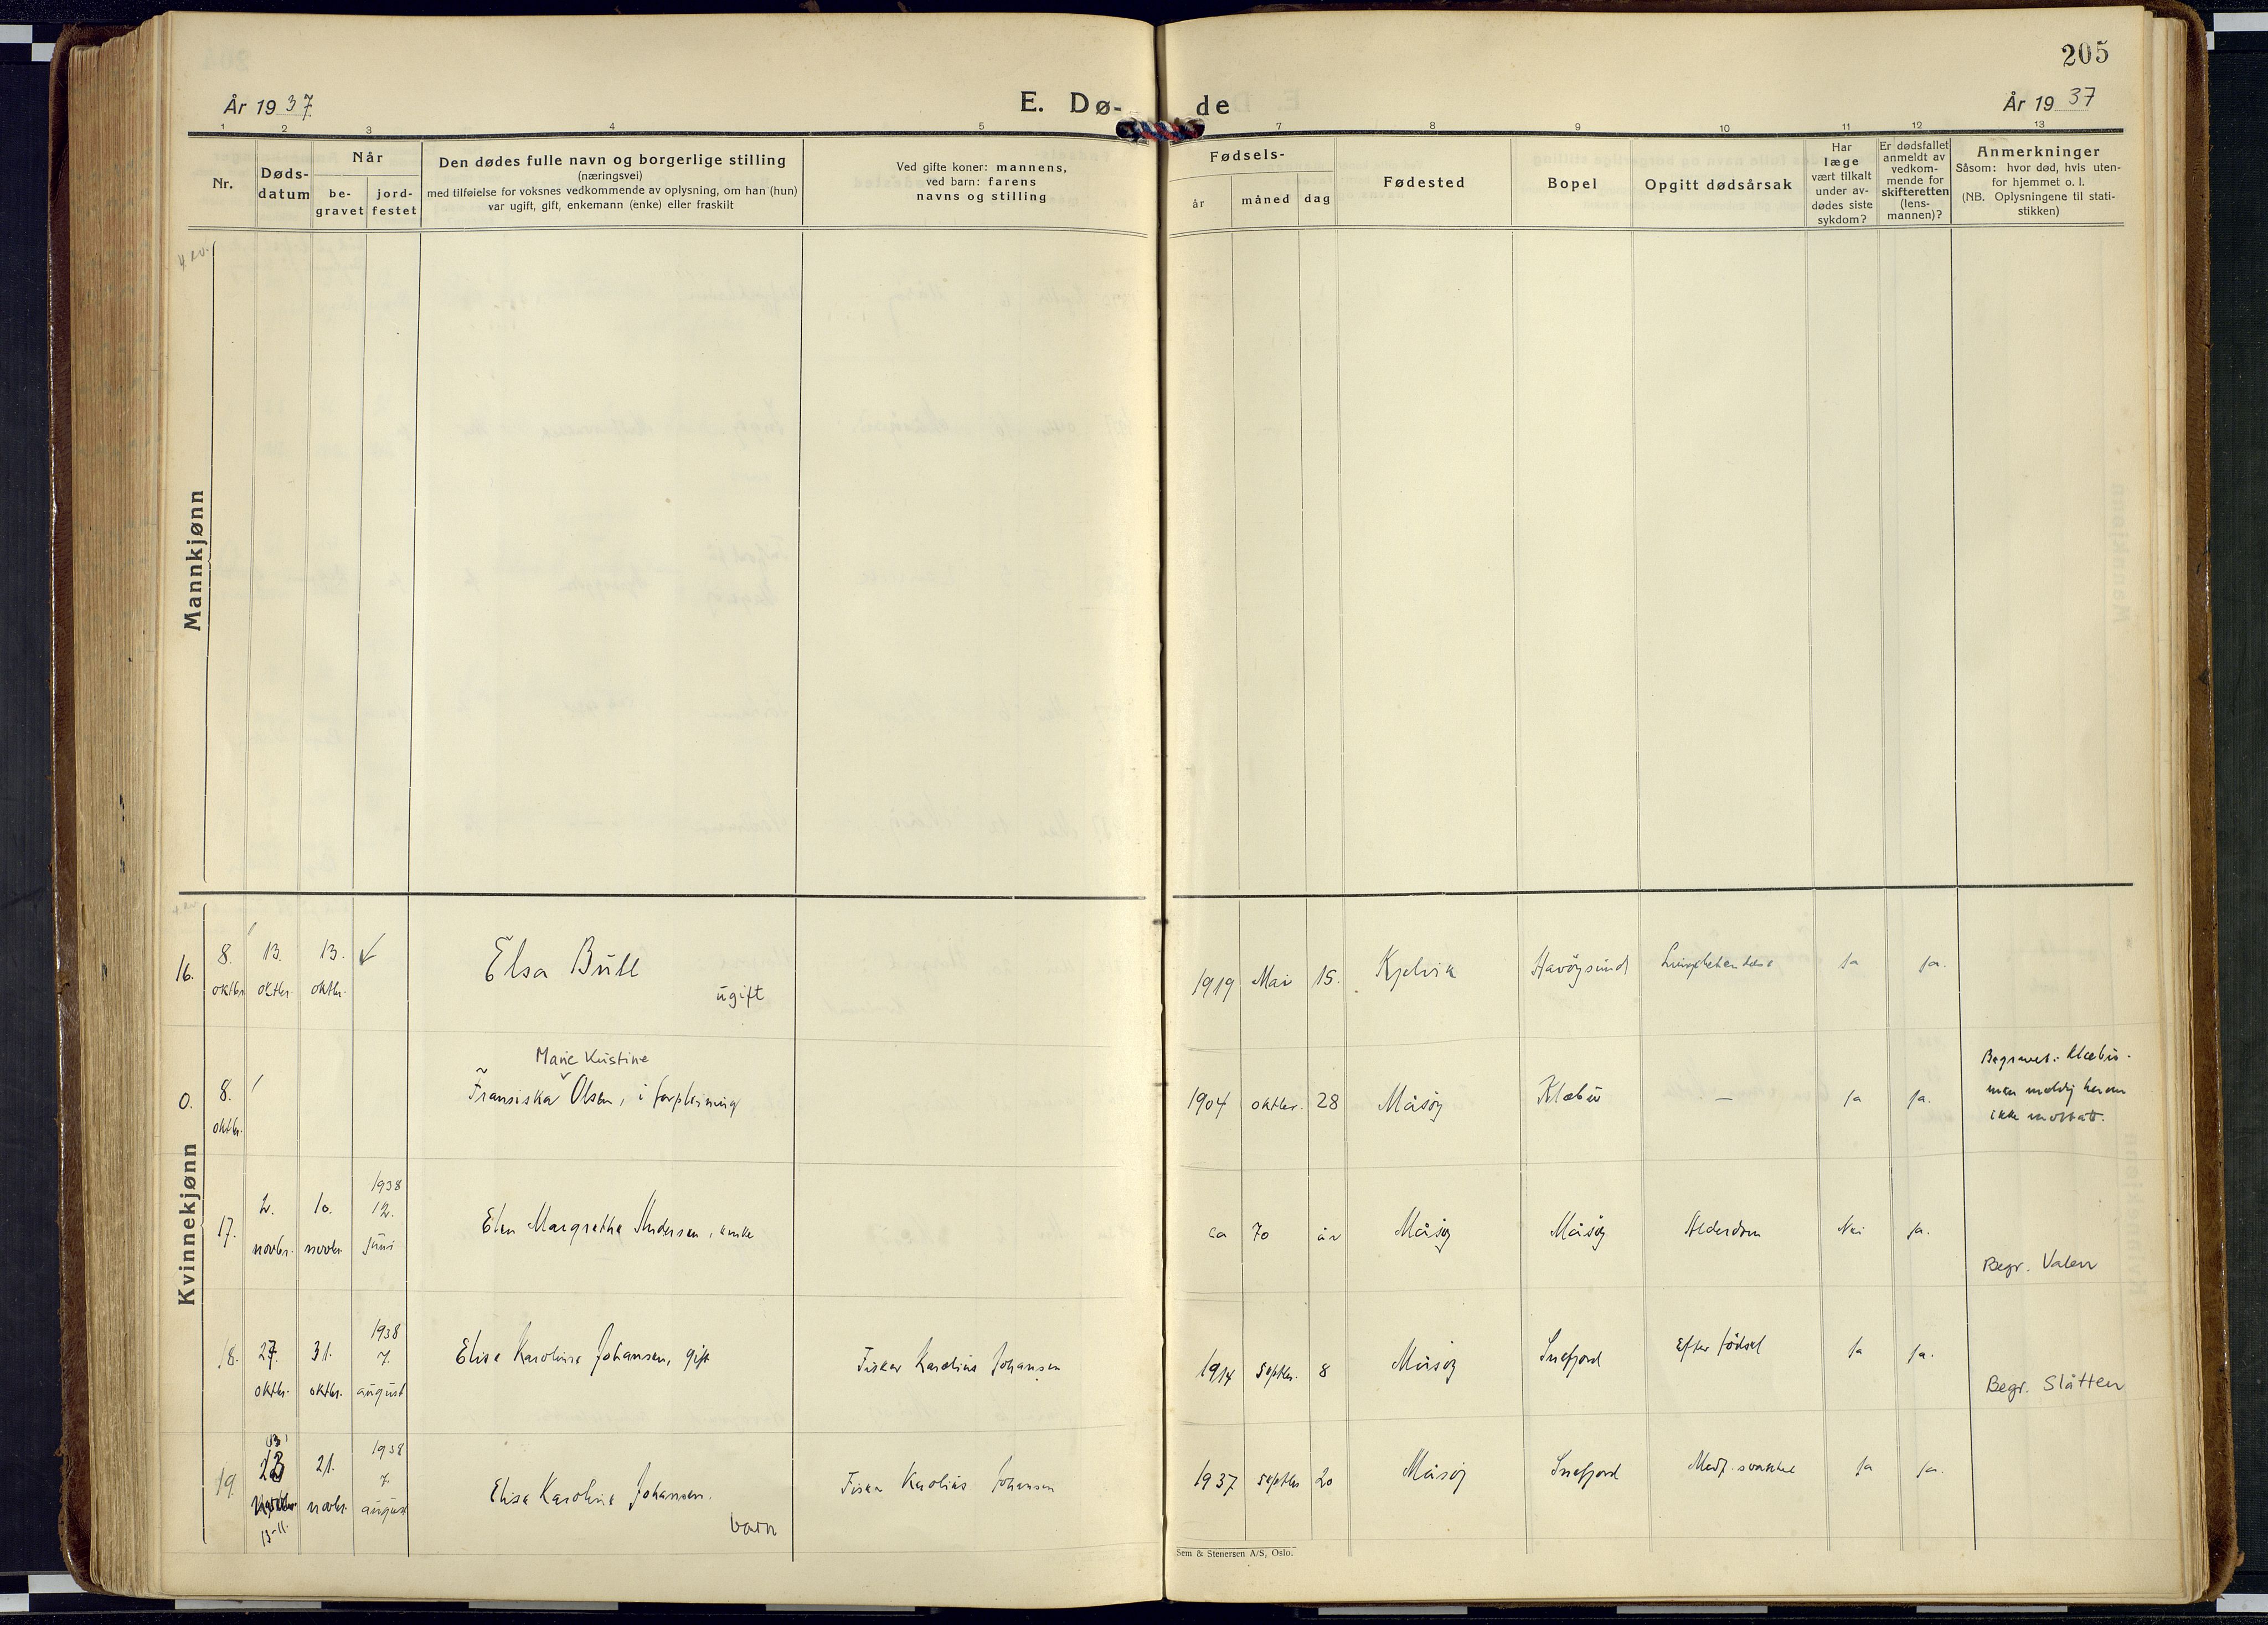 205
År 1937.
E. Dø-
de
År 1937
1 2 3 4 5 7 8 9 10 11 12 13
Nr.
Døds-
datum
Når
be-
gravet
jord-
festet
Den dødes fulle navn og borgerlige stilling
(næringsvei)
med tilføielse for voksnes vedkommende av oplysning, om han (hun)
var ugift, gift, enkemann (enke) eller fraskilt
Ved gifte koner: mannens,
ved barn: farens
navns og stilling
Fødsels-
år
måned
dag
Fødested
Bopel
Opgitt dødsårsak
Har
læge
vært tilkalt
under av-
dødes siste
sykdom?
Er dødsfallet
anmeldt av
vedkom-
mende for
skifteretten
(lens-
mannen)?
Anmerkninger
Såsom: hvor død, hvis uten-
for hjemmet o. l.
(NB. Oplysningene til stati-
stikken)
Mannkjønn
Kvinnekjønn
16. 8. oktbr. 13. oktbr. 13. oktbr. Elsa Bull ugift 1919 Mai 15. Kjelvik Havöysund Ja ja.
0. 8. oktbr. Fransiska Marie Kristine Olsen, i forpleining 1904 oktbr. 28 Måsöy Klæbu — Ja ja. Begravet i Klæbu.
men meldg herom
ikke mottatt.
17. 2. novbr. 10. novbr. 1938 12. juni Elen Margrethe Andersen, enke ca 70 år Måsöy Måsöy Alderdom Nei ja. Begr. Valen
18. 27. oktbr. 31. oktbr. 1938 7. august Elise Karoline Johansen, gift Fisker Karolius Johansen 1914 septbr. 8 Måsöy Snefjord Efter födsel Ja ja. Begr. Slåtten
19. 13 13-11. 21. novbr. 1938 7. august Elise Karoline Johansen. barn Fisker Karolius Johansen 1937 septbr 20 Måsöy Snefjord Medf. svakhet Ja ja.
Sem & Stenersen A/S, Oslo.